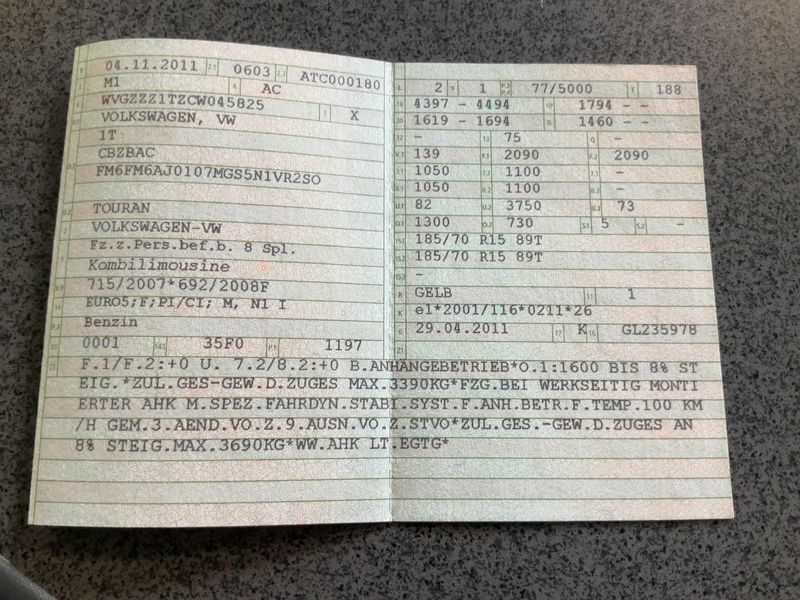 04.11.2011 2.1 0603 2.2 ATC000180
M1 4 AC
WVGZZZ1TZCW045825
VOLKSWAGEN, VW X
1T
CBZBAC
FM6FM6AJ0107MGS5N1VR2SO
TOURAN
VOLKSWAGEN-VW
Fz.z.Pers.bef.b. 8 Spl.
Kombilimousine
715/2007*692/2008F
EURO5;F;PI/CI; M, N1 I
Benzin
0001 14.1 35F0 P.1 1197
2 1 77/5000 188
18 4397 - 4494 19 1794 - -
20 1619 - 1694 G 1460 - -
12 - 13 75 Q -
V.7 139 F.1 2090 F.2 2090
7.1 1050 7.2 1100 7.3 -
8.1 1050 8.2 1100 8.3 -
U.1 82 U.2 3750 U.3 73
O.1 1300 O.2 730 S.1 5 S.2 -
15.1 185/70 R15 89T
15.2 185/70 R15 89T
15.3 -
R GELB 11 1
K e1*2001/116*0211*26
6 29.04.2011 17 K 16 GL235978
21
22 F.1/F.2:+0 U. 7.2/8.2:+0 B.ANHÄNGEBETRIEB*O.1:1600 BIS 8% ST
EIG.*ZUL.GES-GEW.D.ZUGES MAX.3390KG*FZG.BEI WERKSEITIG MONTI
ERTER AHK M.SPEZ.FAHRDYN.STABI.SYST.F.ANH.BETR.F.TEMP.100 KM
/H GEM.3.AEND.VO.Z.9.AUSN.VO.Z.STVO*ZUL.GES.-GEW.D.ZUGES AN
8% STEIG.MAX.3690KG*WW.AHK LT.EGTG*